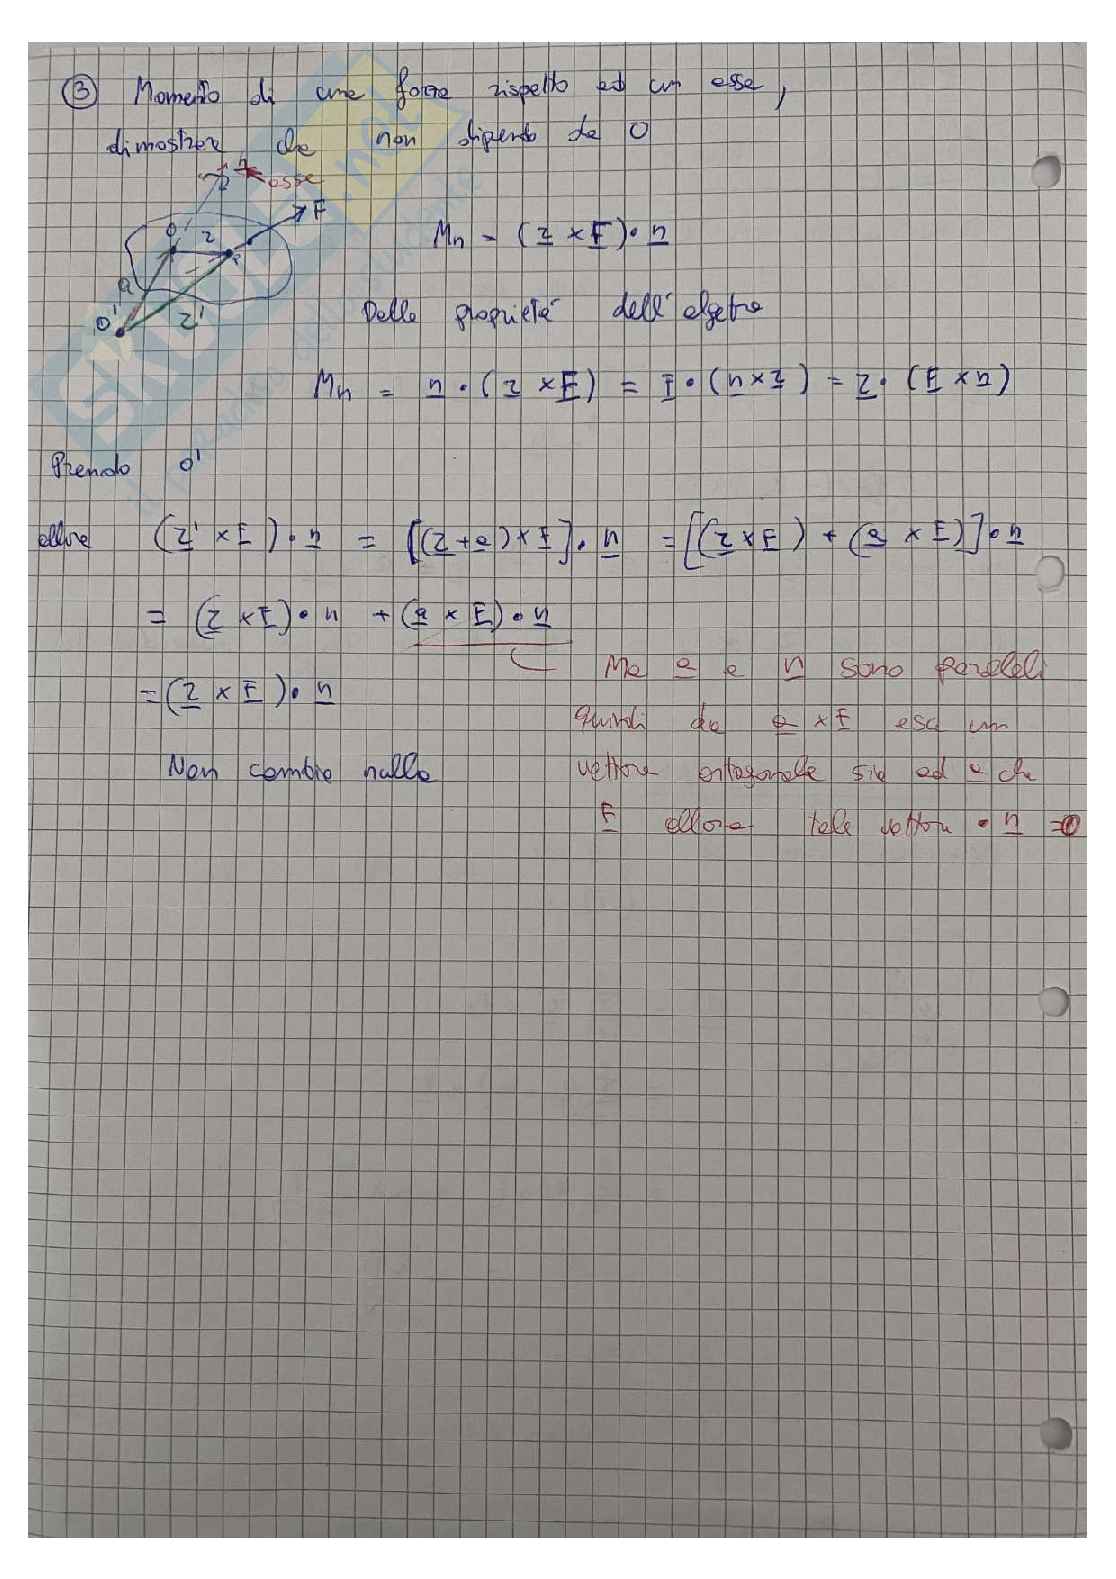 ③ Momento di una forza rispetto ad un asse,
dimostrare che non dipende da O
n
asse
F
O
r
P
a
O'
r'
Mn = (r × F) • n
Dalle proprietà dell'algebra
Mn = n • (r × F) = F • (n × r) = r • (n × F)
Prendo O'
allora (r' × F) • n = [(r + a) × F] • n = [(r × F) + (a × F)] • n
= (r × F) • n + (a × F) • n
Ma a e n sono paralleli
= (r × F) • n
quindi da a × F esce un
Non cambia nulla
vettore ortogonale sia ad a che
F allora tale vettore • n = 0